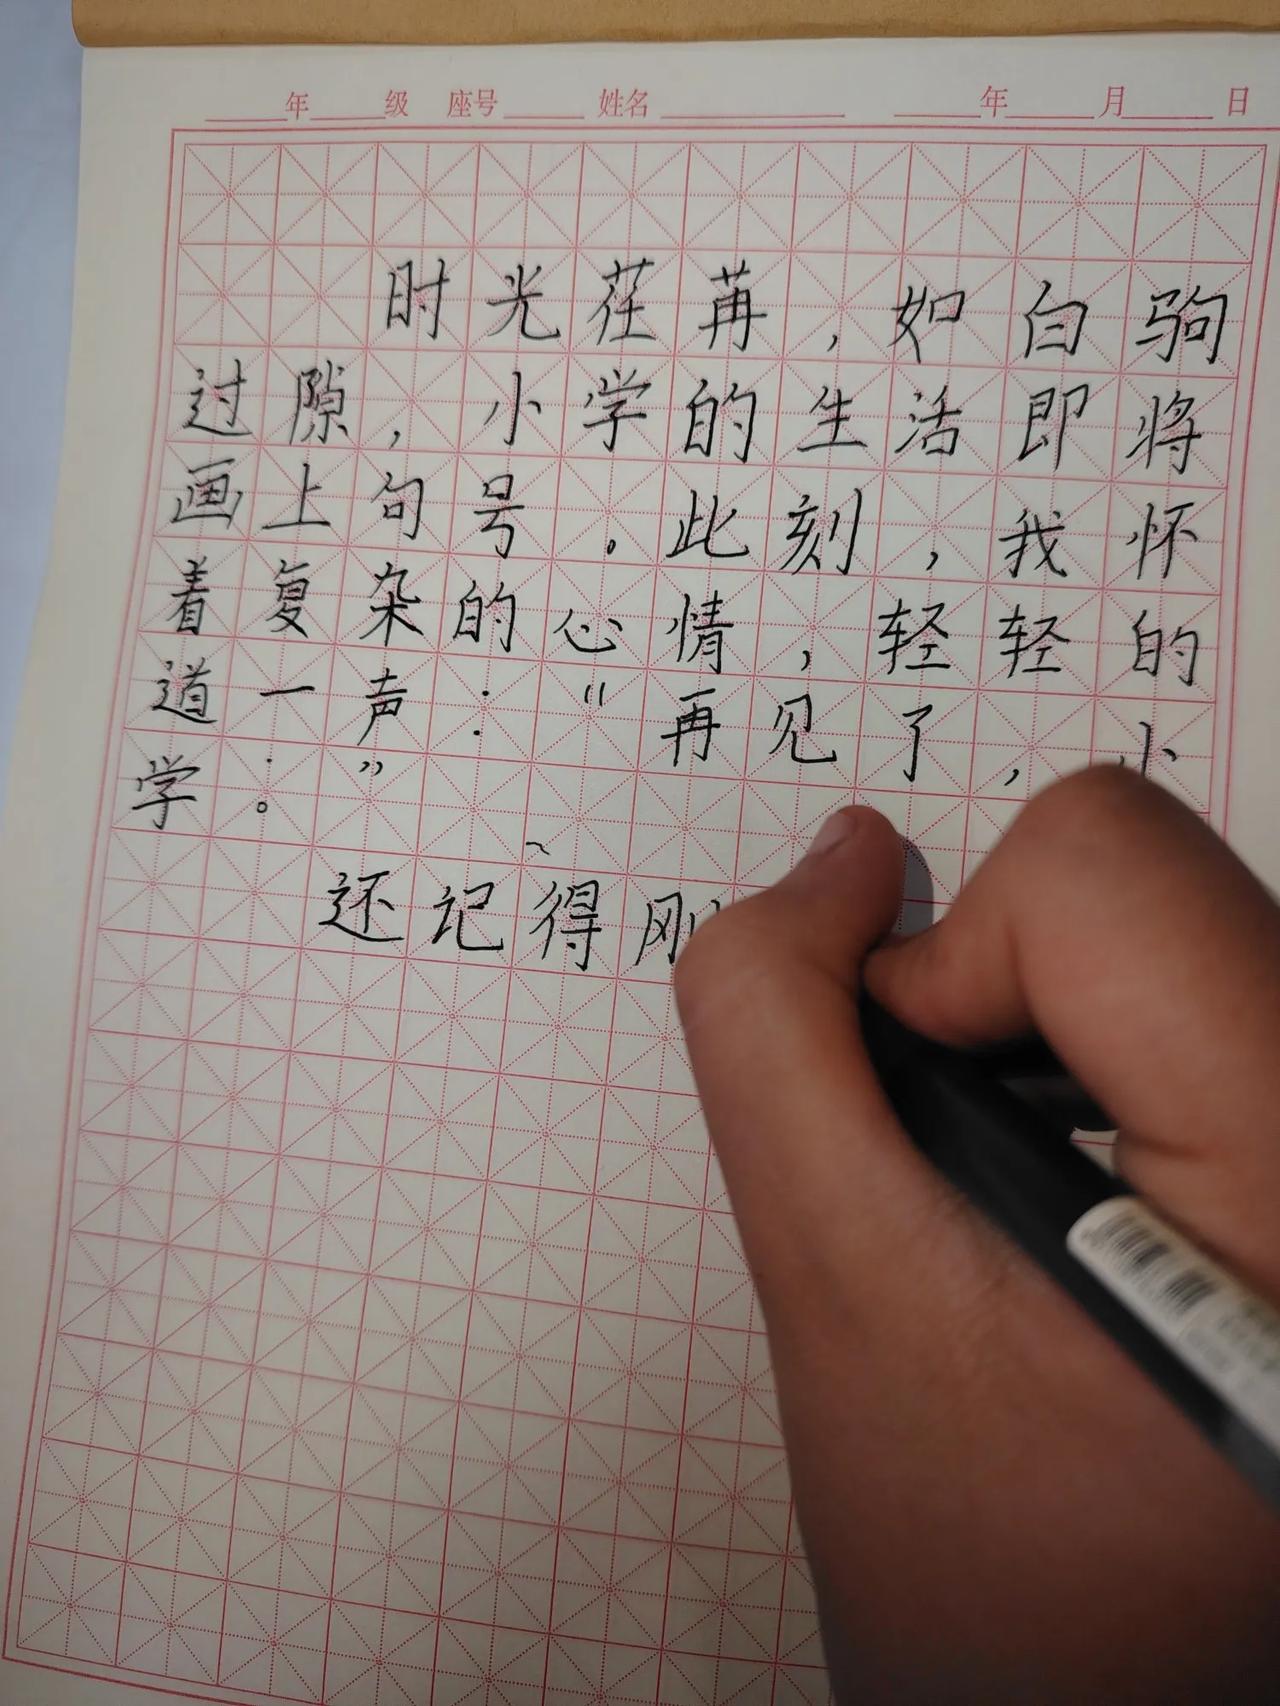 年 级 座号 姓名 年 月 日
时光荏苒，如白驹
过隙，小学的生活即将
画上句号。此刻，我怀
着复杂的心情，轻轻的
道一声：“再见了，小
学。”
还记得刚